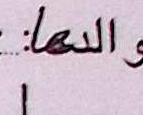 و الدها: